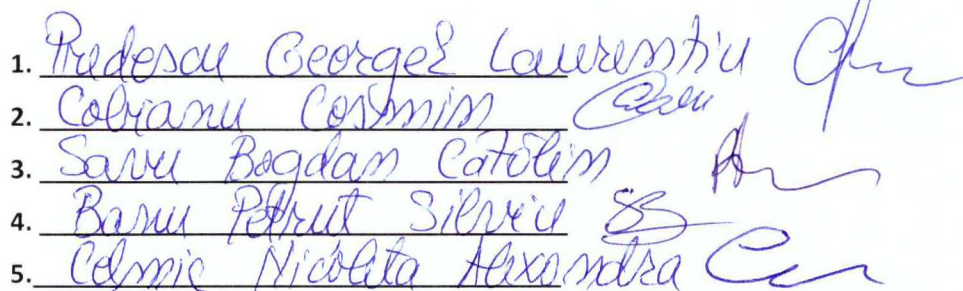 1. Predescu Georgel Laurentiu
2. Cosmin
3. Savu Bogdan Catolin
4. Banu Petrut Silviu
5. Nicoleta Alexandra